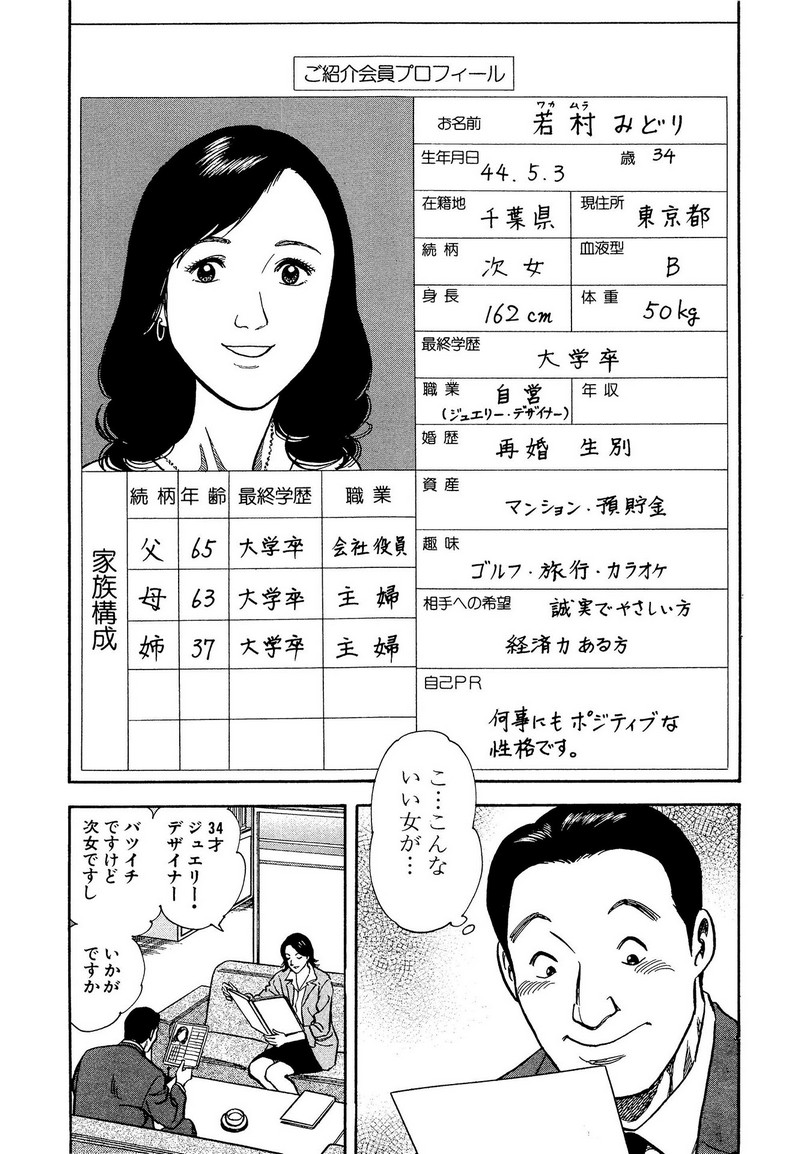 ご紹介会員プロフィール
お名前 若村みどり
ワカ ムラ
生年月日 44.5.3 歳 34
在籍地 千葉県 現住所 東京都
続柄 次女 血液型 B
身長 162cm 体重 50kg
最終学歴 大学卒
職業 自営 年収
(ジュエリー・デザイナー)
婚歴 再婚 生別
資産
マンション・預貯金
趣味
ゴルフ・旅行・カラオケ
相手への希望 誠実でやさしい方
経済力ある方
自己PR
何事にもポジティブな
性格です。
家族構成
続柄 年齢 最終学歴 職業
父 65 大学卒 会社役員
母 63 大学卒 主婦
姉 37 大学卒 主婦
こ…こんな
いい女が…
34才
ジュエリー・
デザイナー
バツイチ
ですけど
次女ですし
いかが
ですか